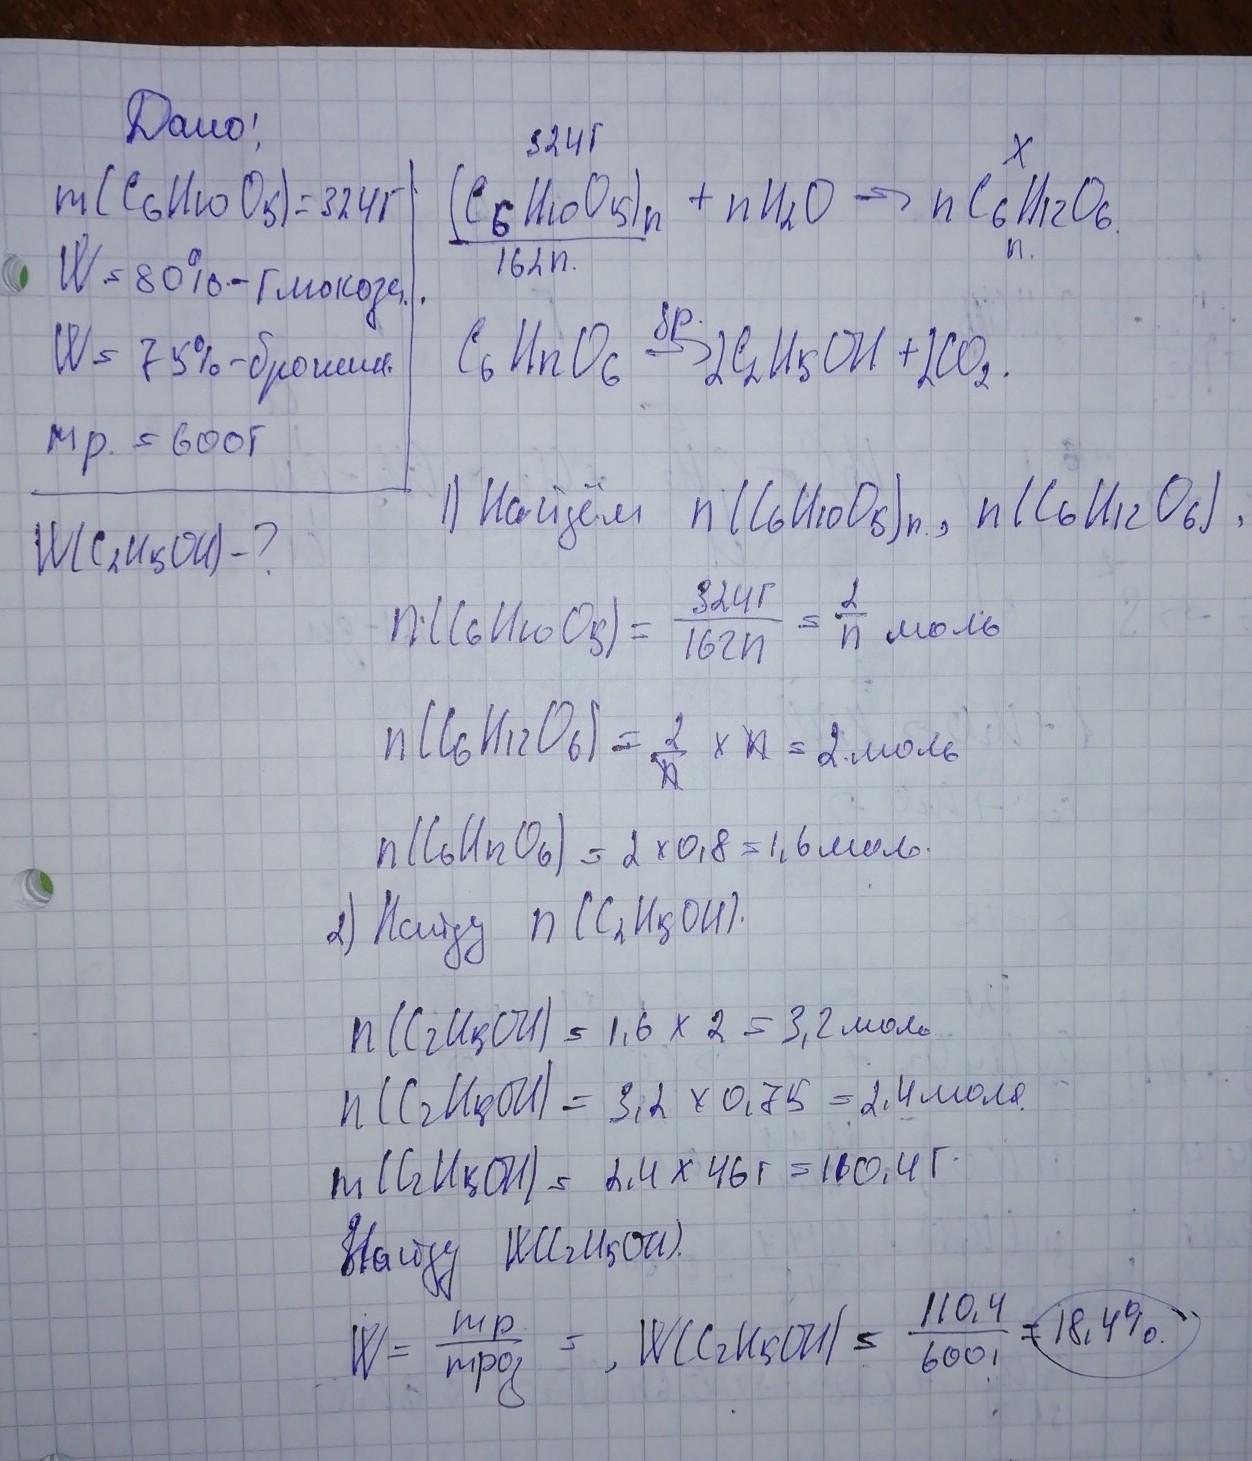 Дано!
m(C6H10O5)=324г
W=80%-глюкоза.
W=75%-брожен.
mр.=600г
W(C2H5OH)-?
324г
x
(C6H10O5)n + nH2O → nC6H12O6.
162n.
n.
C6H12O6 бр.→ 2C2H5OH+2CO2.
1) Найдём n(C6H10O5)n, n(C6H12O6),
n(C6H10O5)=324г/162n=2/n моль
n(C6H12O6)=2/n×n=2.моль
n(C6H12O6)=2×0,8=1,6моль.
2) Найду n(C2H5OH).
n(C2H5OH)=1,6×2=3,2моль
n(C2H5OH)=3,2×0,75=2,4моля.
m(C2H5OH)=2,4×46г=110,4г.
Найду W(C2H5OH).
W=mр/mрд=, W(C2H5OH)=110,4/600г=18,4%.